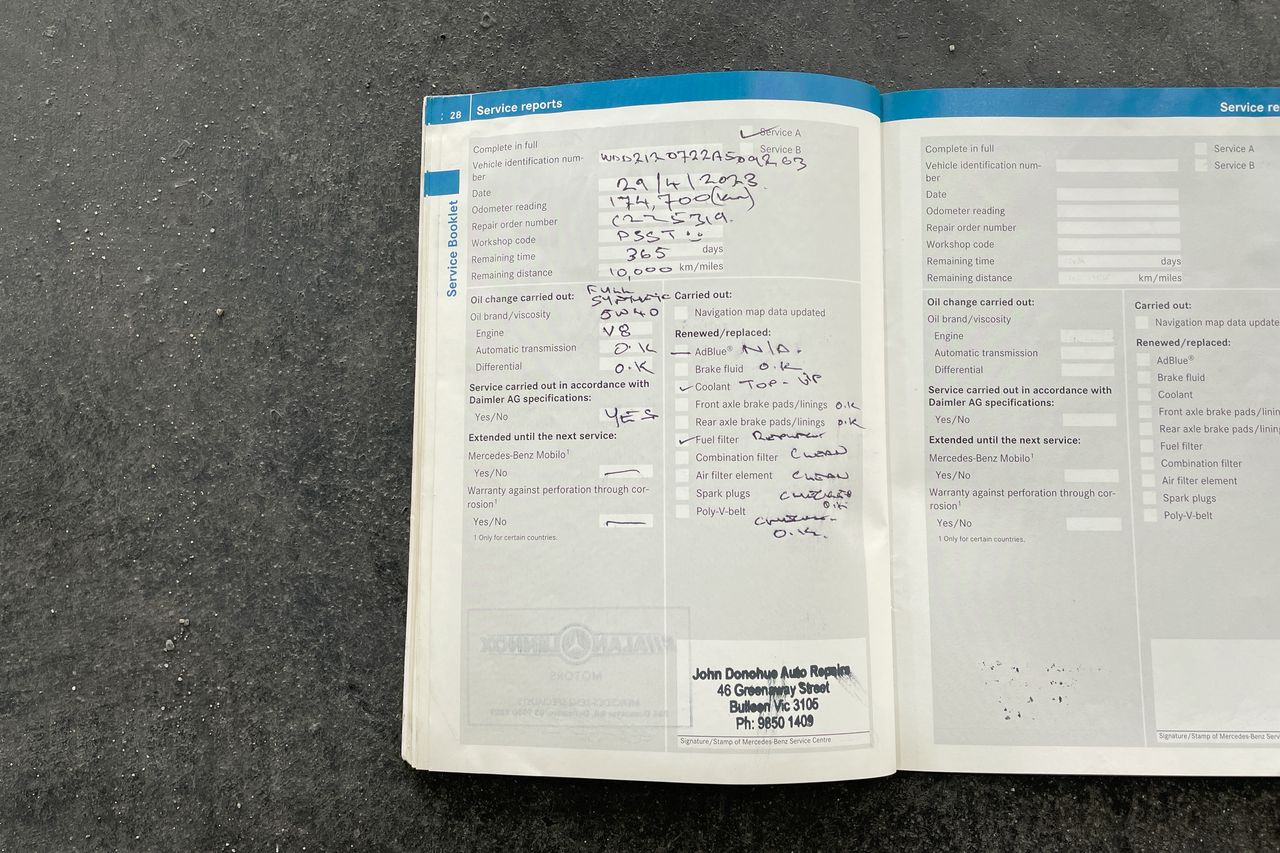 28 Service reports
Service Booklet
Complete in full
Service A
Service B
Vehicle identification num-
ber
WDD2120722A509263
Date 29/4/2023.
Odometer reading 174,700(km)
Repair order number C225319.
Workshop code PSST
Remaining time 365 days
Remaining distance 10,000 km/miles
Oil change carried out: FULL
SYNTHETIC
Oil brand/viscosity 5W40
Engine V8
Automatic transmission O.K
Differential O.K
Service carried out in accordance with
Daimler AG specifications:
Yes/No YES
Extended until the next service:
Mercedes-Benz Mobilo¹
Yes/No —
Warranty against perforation through cor-
rosion¹
Yes/No —
¹ Only for certain countries.
Carried out:
Navigation map data updated
Renewed/replaced:
AdBlue® N/A.
Brake fluid O.K
Coolant TOP-UP
Front axle brake pads/linings O.K
Rear axle brake pads/linings O.K
Fuel filter
Combination filter CLEAN
Air filter element CLEAN
Spark plugs CHECKED
O.K
Poly-V-belt
O.K.
John Donohue Auto Repairs
46 Greenaway Street
Bulleen Vic 3105
Ph: 9850 1409
Signature/Stamp of Mercedes-Benz Service Centre
Service re
Complete in full
Service A
Service B
Vehicle identification num-
ber
Date
Odometer reading
Repair order number
Workshop code
Remaining time days
Remaining distance km/miles
Oil change carried out:
Oil brand/viscosity
Engine
Automatic transmission
Differential
Service carried out in accordance with
Daimler AG specifications:
Yes/No
Extended until the next service:
Mercedes-Benz Mobilo¹
Yes/No
Warranty against perforation through cor-
rosion¹
Yes/No
¹ Only for certain countries.
Carried out:
Navigation map data update
Renewed/replaced:
AdBlue®
Brake fluid
Coolant
Front axle brake pads/lining
Rear axle brake pads/linin
Fuel filter
Combination filter
Air filter element
Spark plugs
Poly-V-belt
Signature/Stamp of Mercedes-Benz Se